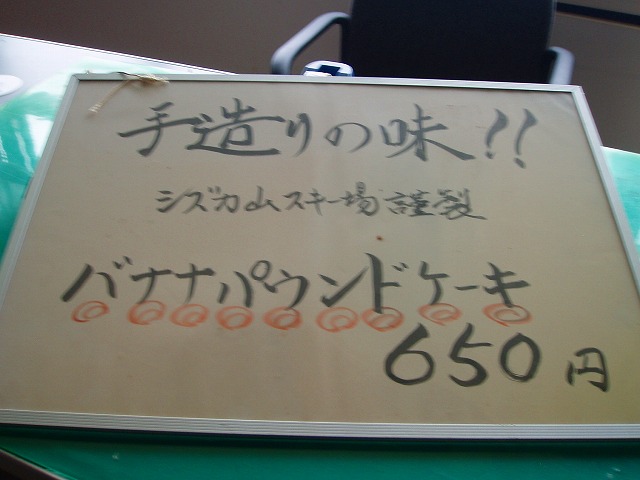 手造りの味!!
シズカ山スキー場謹製
バナナパウンドケーキ
650円